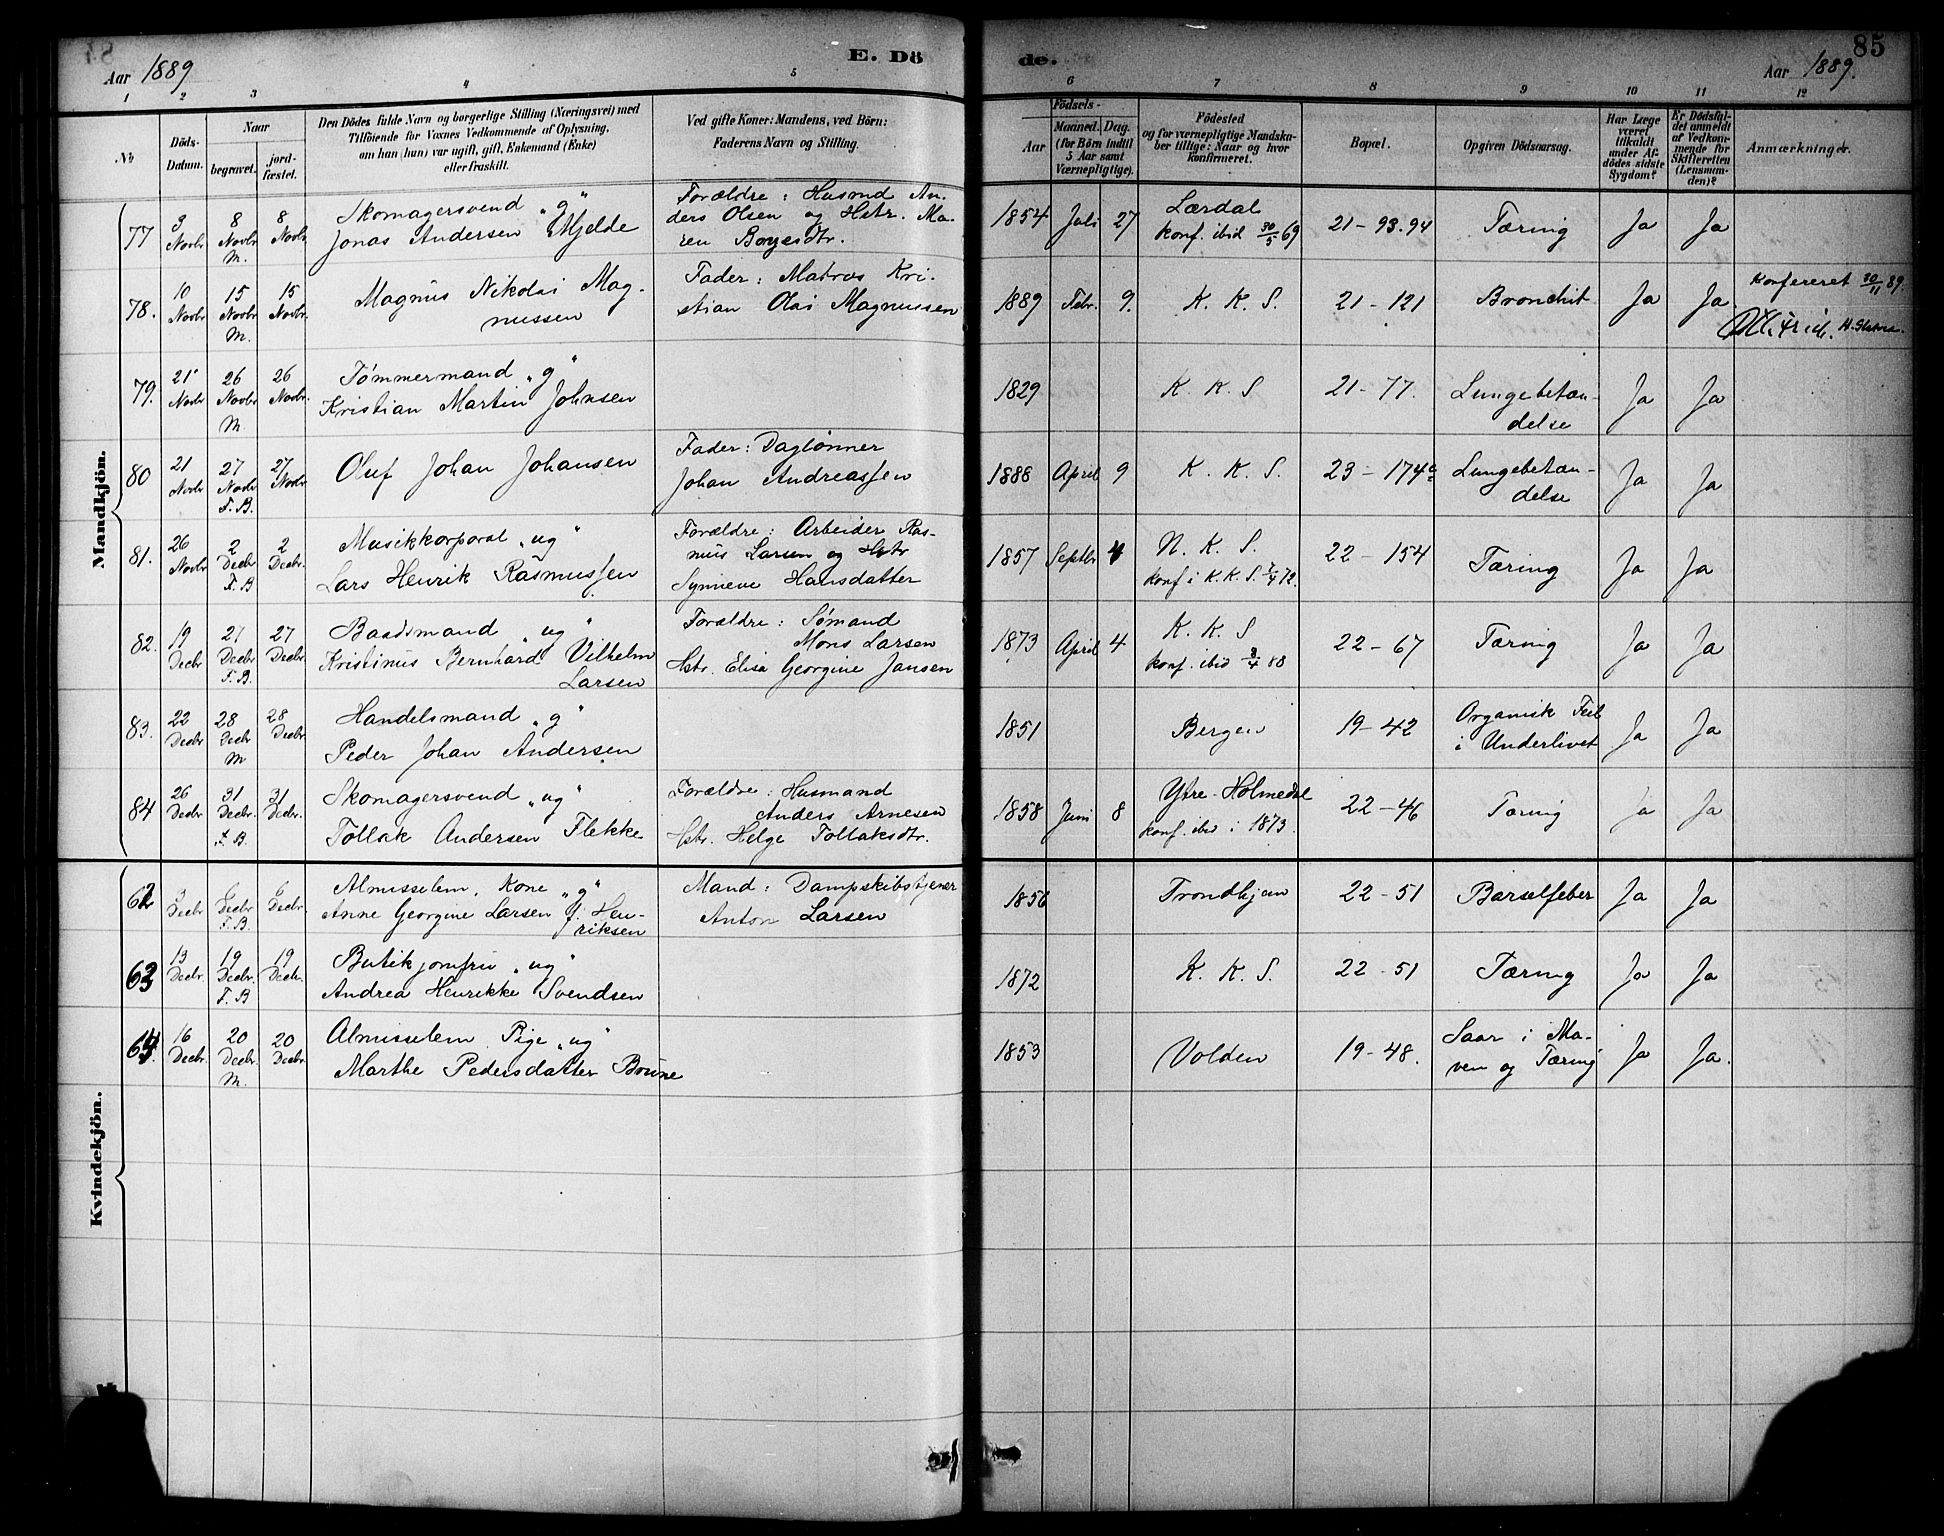 Aar 1889
E. Dö
de.
85
Aar 1889.
1 2 3 4 5 6 7 8 9 10 11 12
No
Döds-Datum.
Naar
begravet.
jord-fæstet.
Den Dödes fulde Navn og borgerlige Stilling (Næringsvei) med
Tilföiende for Voxnes Vedkommende af Oplysning,
om han (hun) var ugift, gift, Enkemand (Enke)
eller fraskilt.
Ved gifte Koner: Mandens, ved Börn:
Faderens Navn og Stilling.
Födsels-
Aar
Maaned. Dag.
(for Börn indtil
5 Aar samt
Værnepligtige).
Födested
og for værnepligtige Mandska-
ber tillige: Naar og hvor
konfirmeret.
Bopæl.
Opgiven Dödsaarsag.
Har Læge
været
tilkaldt
under Af-
dödes sidste
Sygdom?
Er Dödsfal-
det anmeldt
af Vedkom-
mende for
Skifteretten
(Lensman-
den)?
Anmærkninger.
Mandkjön.
77 3 Novbr 8 Novbr M. 8 Novbr. Skomagersvend "g" Jonas Andersen Mjelde
Forældre: Husmd An-
ders Olsen og Hstr. Ma-
ren Boyesdtr.
1854 Juli 27 Lærdal konf. ibid 30/5 69 21-93.94 Tæring Ja Ja
78. 10 Novbr 15 Novbr M. 15 Novbr. Magnus Nikolai Mag-
nussen
Fader: Matros Kri-
stian Olai Magnussen
1889 Febr. 9. K. K. S. 21-121 Bronchit Ja Ja Konfereret 30/11 89.
79. 21 Novbr 26 Novbr M 26 Novbr. Tømmermand "g"
Kristian Martin Johnsen
1829 K. K. S 21-77. Lungebetæn-
delse Ja Ja
80 21 Novbr 27 Novbr F. B. 27 Novbr Oluf Johan Johansen
Fader: Dagløнner
Johan Andreassen
1888 April 9 K. K. S. 23-174a Lungebetæn-
delse Ja Ja
81. 26 Novbr 2 Decbr F. B 2 Decbr. Musikkorporal "ug"
Lars Henrik Rasmussen
Forældre: Arbeider Ras-
mus Larsen og Hstr
Synneve Hansdatter
1857 Septbr 4 N. K. S.
konf i K. K. S. 7/4 72. 22-154 Tæring Ja Ja
82. 19 Decbr 27 Decbr F. B. 27 Decbr. Baadsmand "ug"
Kristinus Bernhard Vilhelm
Larsen
Forældre: Sømand
Mons Larsen
Hstr. Elisa Georgine Jansen
1873 April 4 K. K. S
konf. ibid 8/4 88 22-67 Tæring Ja Ja
83. 22 Decbr 28 Decbr M 28 Decbr. Handelsmand "g"
Peder Johan Andersen
1851 Bergen 19-42 Organisk Feil
i Underlivet Ja Ja
84 26 Decbr 31 Decbr. F. B. 31 Decbr. Skomagersvend "ug"
Tollak Andersen Flekke
Forældre: Husmand
Anders Arnesen
Hstr. Helge Tollaksdtr.
1858 Juni 8 Ytre-Holmedal
konf. ibid i 1873. 22-46 Tæring Ja Ja
Kvindekjön.
62 3 Decbr 6 Decbr F. B. 6 Decbr. Almisselem, Kone "g"
Anne Georgine Larsen f. Hen-
riksen
Mand: Dampskibstjener
Anton Larsen
1856 Trondhjem 22-51 Barselfeber Ja Ja
63 13 Decbr. 19 Decbr. F. B 19 Decbr. Butikjomfru "ug"
Andrea Henrikke Svendsen
1872 K. K. S. 22-51 Tæring Ja Ja
64. 16 Decbr. 20 Decbr. M. 20 Decbr Almisselem Pige "ug"
Marthe Pedersdatter Brune
1853 Volden 19-48. Saar i Ma-
ven og Tæring Ja Ja.